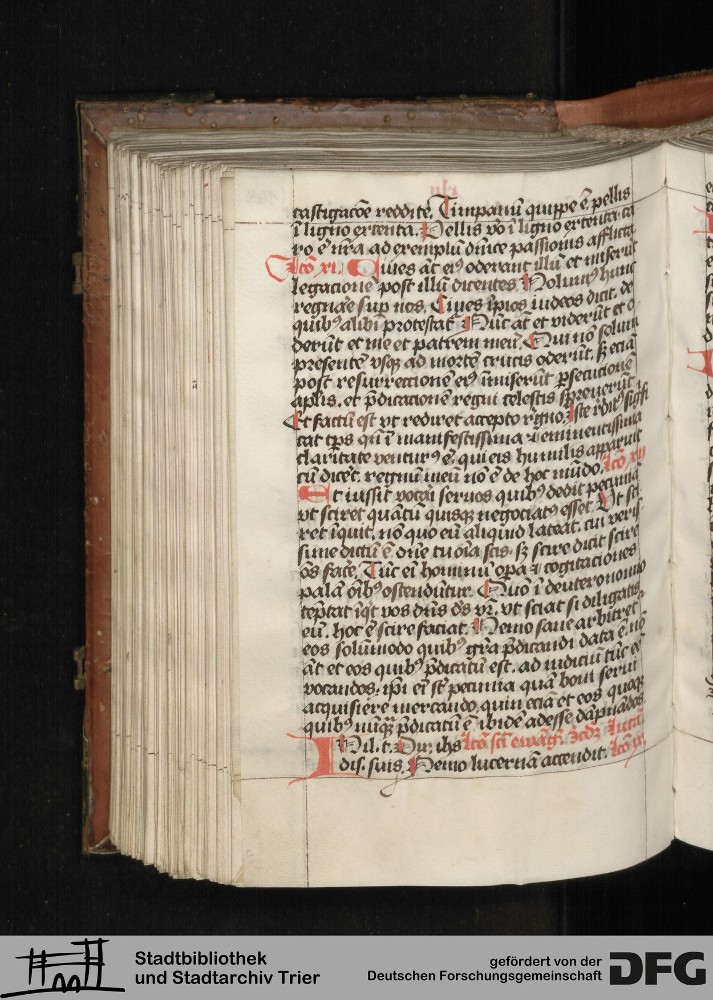 castigacōe reddite. Timpanū quippe ē pellis
ī ligno extenta. Pellis vo ī ligno extenta ca
ro ē nr̄a ad exemplū dn̄ice passionis afflicta
Lc̄o xi. Ciues āt eiꝰ oderant illū et miserūt
legacionē post illū dicentes. Nolumꝰ hunc
regnare sup nos. Ciues īpios iudeos dicit. de
quibꝰ alibi protestat. Nūc āt et viderūt et o
derūt et me et patrem meū. Qui nō solum
presentē vsqꝫ ad mortē crucis oderūt. sꝫ eciā
post resurrectionē eiꝰ īmiserūt psecucionē
aplis. et p̄dicacionē regni celestis spreuerūt
Et factū est vt rediret accepto rēgno. Iste
tps qn̄ ī manifestissima ⁊ eminentissima
claritate venturꝰ ē. qui eis humilis apparuit
cū dicēt. regnū meū nō ē de hoc mūdo. Lc̄o xij
Et iussit vocari seruos quibꝰ dedit pecuniā
vt sciret quātū quisqꝫ negociatꝰ esset. Vt sci
ret īquit. nō quo eū aliquid lateat. cui veris
sime dictū ē. dn̄e tu oīa scis. sꝫ scire dicit scire
ōs face. Tūc eī hominū opa ⁊ cogitaciones
palā oībꝰ ostendūtur. Quō ī deuteronomio
teptat īqt vos dn̄s ds vr̄. vt sciat si diligatis
eū. hoc ē scire faciat. Nemo sane arbitret
eos solūmodo quibꝰ gr̄a p̄dicandi data ē. nō
āt et eos quibꝰ p̄dicatū est. ad iudiciū tūc eē
vocandos. ipi eī st̄ pecunia quā boni serui
acquisiere mercando. quin eciā et eos quoqꝫ
quibꝰ nūq̄ p̄dicatū ē ibidē adesse dāpnādos
In il. t. Dix. ihs Lc̄o sc̄i ewāg. scdꝫ Lucā
dis. suis. Nemo lucernā accendit. Lc̄o ix
Stadtbibliothek
und Stadtarchiv Trier
gefördert von der
Deutschen Forschungsgemeinschaft
DFG